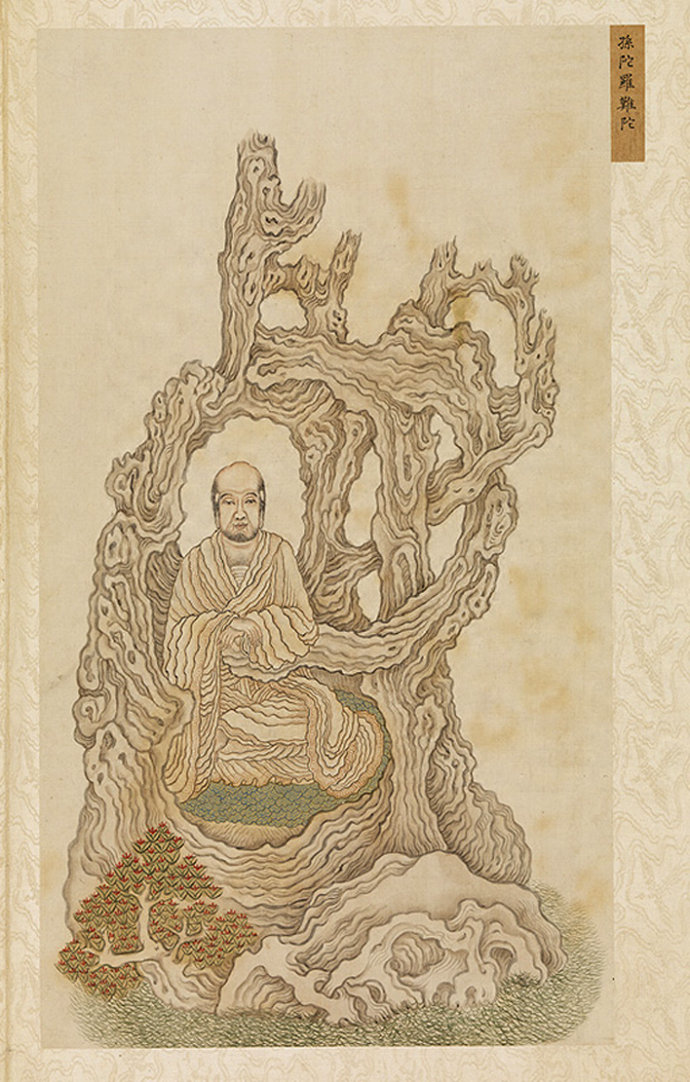 孫陀羅難陀